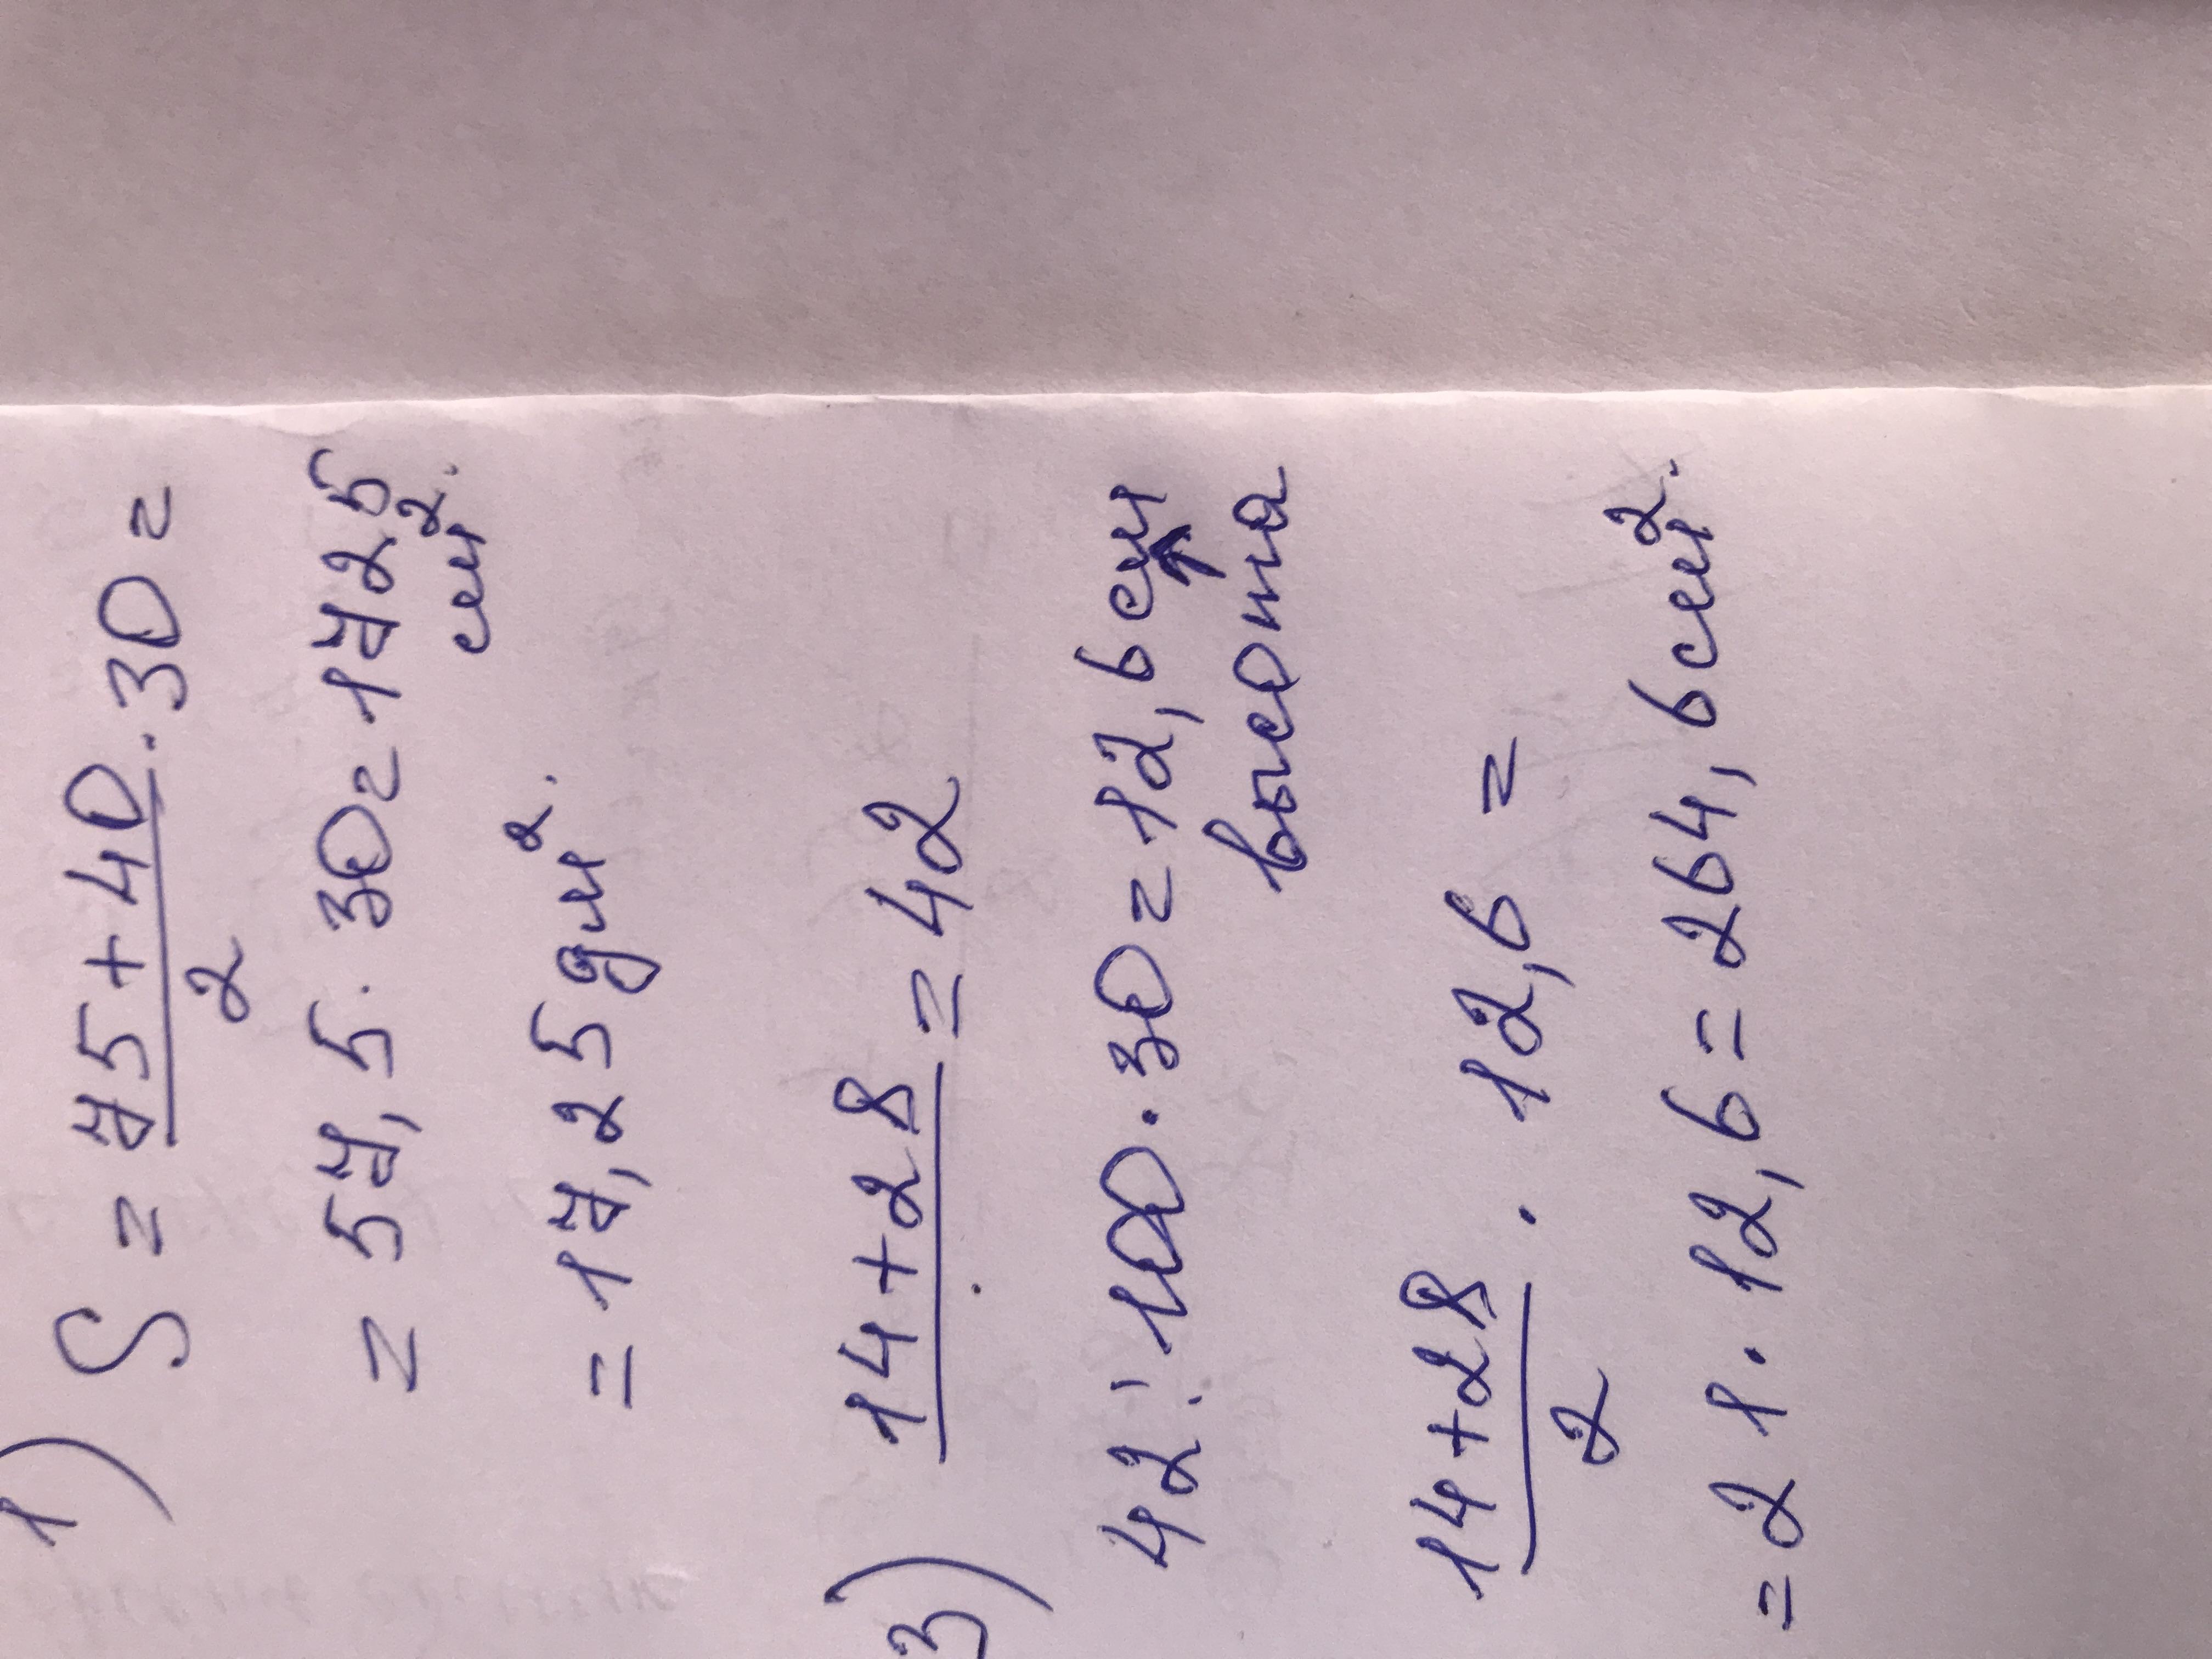 1) S = 75+40/2 . 30 =
= 57,5 . 30 = 1725 см².
= 17,25 дм².
3) 14+28 = 42
42 : 100 . 30 = 12,6 см
высота
14+28/2 . 12,6 =
= 21 . 12,6 = 264,6 см².